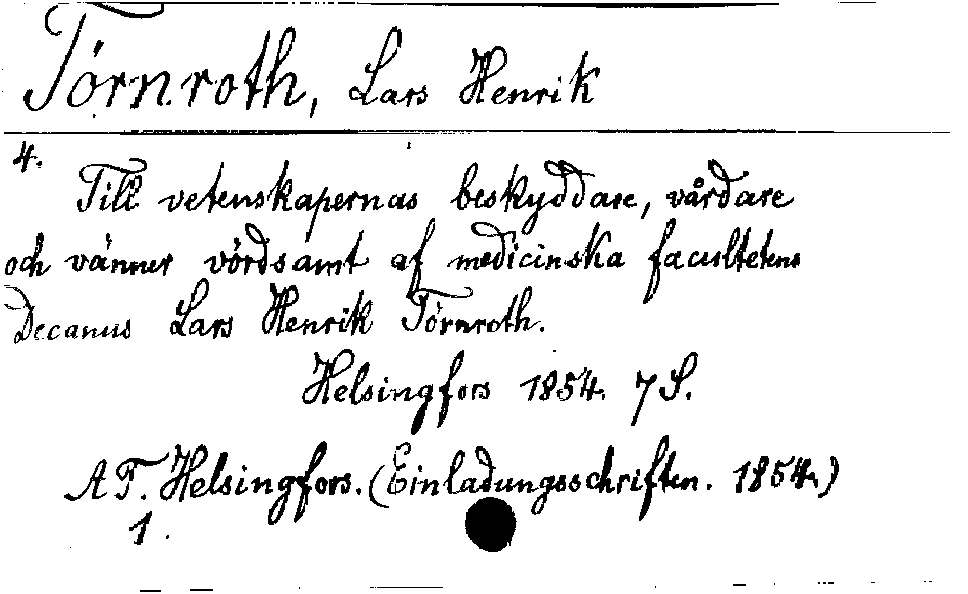 Törnroth, Lars Henrik
4.
Till vetenskapernas beskyddare, vårdare
och vänner vördsamt af medicinska facultetens
Decanus Lars Henrik Törnroth.
Helsingfors 1854. 7 S.
AT. Helsingfors. (Einladungsschriften. 1854.)
1.